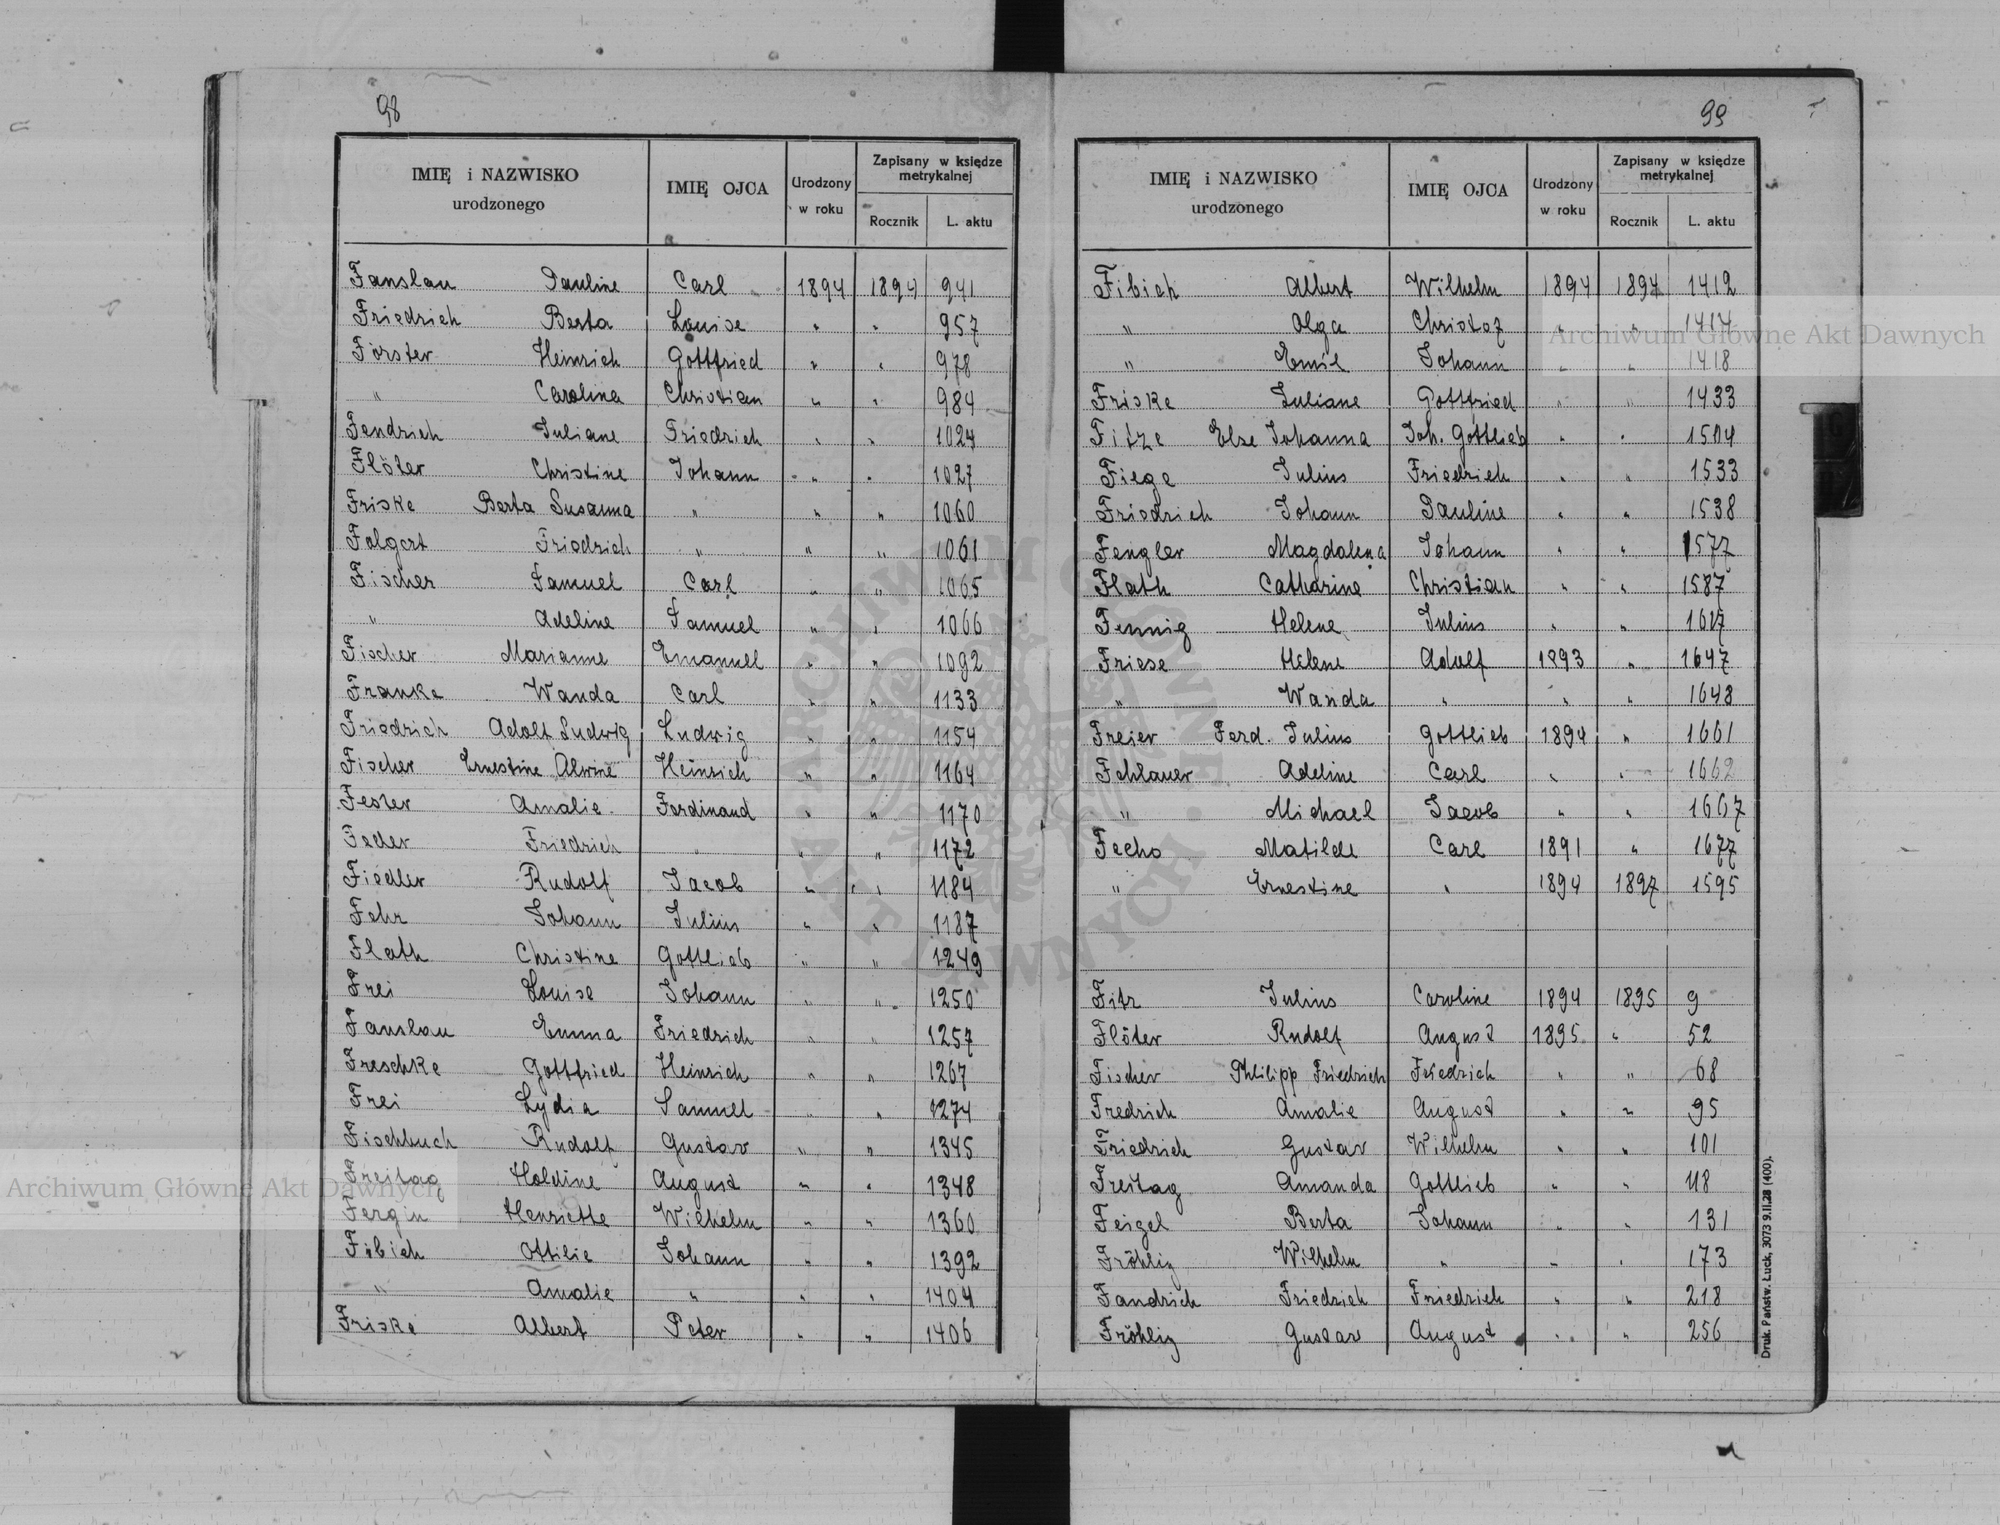 98
IMIĘ i NAZWISKO urodzonego IMIĘ OJCA Urodzony w roku Zapisany w księdze metrykalnej Rocznik L. aktu
Fanslau Pauline Carl 1894 1894 941
Friedrich Berta Louise " " 957
Förster Heinrich Gottfried " " 978
" Carolina Christian " " 984
Fendrich Juliane Friedrich " " 1024
Flöter Christine Johann " " 1027
Friske Berta Susanna " " " 1060
Folgert Friedrich " " " 1061
Fischer Samuel Carl " " 1065
" Adeline Samuel " " 1066
Fischer Marianne Emanuel " " 1092
Franke Wanda Carl " " 1133
Friedrich Adolf Ludwig Ludwig " " 1154
Fischer Ernestine Alwine Heinrich " " 1164
Fester Amalie Ferdinand " " 1170
Feder Friedrich " " " 1172
Fiedler Rudolf Jacob " " 1184
Fehr Johann Julius " " 1187
Flath Christine Gottlieb " " 1249
Frei Louise Johann " " 1250
Fanslau Emma Friedrich " " 1257
Freschke Gottfried Heinrich " " 1267
Frei Lydia Samuel " " 1274
Fischbuch Rudolf Gustav " " 1345
Freitag Holdine August " " 1348
Fergin Henriette Wilhelm " " 1360
Fibich Ottilie Johann " " 1392
" Amalie " " " 1404
Friske Albert Peter " " 1406
99
IMIĘ i NAZWISKO urodzonego IMIĘ OJCA Urodzony w roku Zapisany w księdze metrykalnej Rocznik L. aktu
Fibich Albert Wilhelm 1894 1894 1412
" Olga Christof " " 1414
" Emil Johann " " 1418
Friske Juliane Gottfried " " 1433
Fitze Else Johanna Joh. Gottlieb " " 1504
Fiege Julius Friedrich " " 1533
Friedrich Johann Pauline " " 1538
Fengler Magdalena Johann " " 1577
Flath Catharine Christian " " 1587
Fennig Helene Julius " " 1617
Friese Helene Adolf 1893 " 1647
" Wanda " " " 1648
Freier Ferd. Julius Gottlieb 1894 " 1661
Fehlauer Adeline Carl " " 1662
" Michael Jacob " " 1667
Fecho Matilde Carl 1891 " 1677
" Ernestine " 1894 1897 1595
Fitz Julius Caroline 1894 1895 9
Flöter Rudolf August 1895 " 52
Fischer Philipp Friedrich Friedrich " " 68
Fredrich Amalie August " " 95
Friedrich Gustav Wilhelm " " 101
Freitag Amanda Gottlieb " " 118
Feigel Berta Johann " " 131
Fröhlig Wilhelm " " " 173
Fandrich Friedrich Friedrich " " 218
Fröhlig Gustav August " " 256
Druk. Państw. Łuck, 3073 9.II.28 (400).
Archiwum Główne Akt Dawnych
Archiwum Główne Akt Dawnych
ARCHIWUM GŁÓWNE AKT DAWNYCH